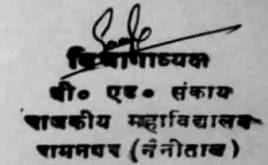 विभागाध्यक्ष
बी० एड० संकाय
राजकीय महाविद्यालय
रामनगर (नैनीताल)